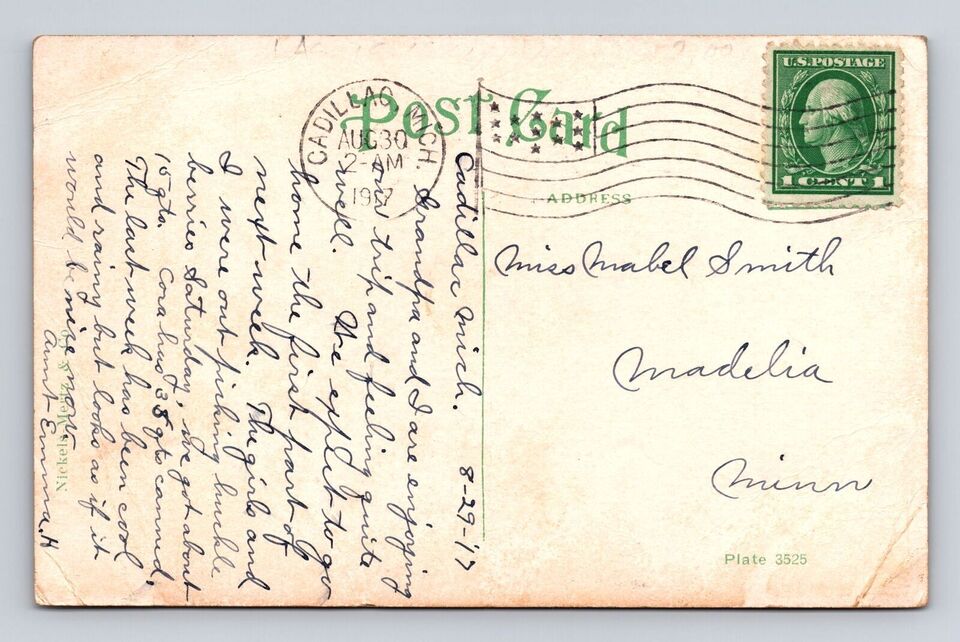 Post Card
CADILLAC MICH.
AUG 30
2-AM
1917
U.S. POSTAGE
1 CENT 1
ADDRESS
Miss Mabel Smith
Madelia
Minn
Plate 3525
Cadillac Mich. 8-29-17
Grandpa and I are enjoying
our trip and feeling quite
well. We expect to go
home the first part of
next week. The girls and
I were out picking huckle
berries Saturday, we got about
15 qts. Cora has 38 qts canned.
The last week has been cool
and rainy but looks as if it
would be nice now.
Aunt Emma. H
Nickels